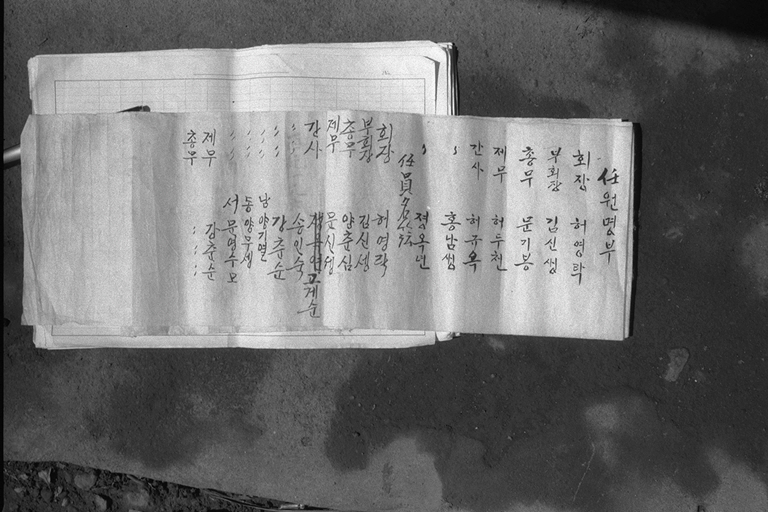 任원명부
회장 허영탁
부회장 김신쎙
총무 문기봉
제무 허두천
간사 허규옥
〃 홍남썸
〃 정옥년
任員名簿
회장 허영락
부회장 김신생
총무 양춘심
제무 문신생
간사 고계순
〃 송인숙
〃 강춘순
〃 낭양지열
〃 동양무생
〃 서문영수모
제무 강춘순
총무 〃 〃 〃